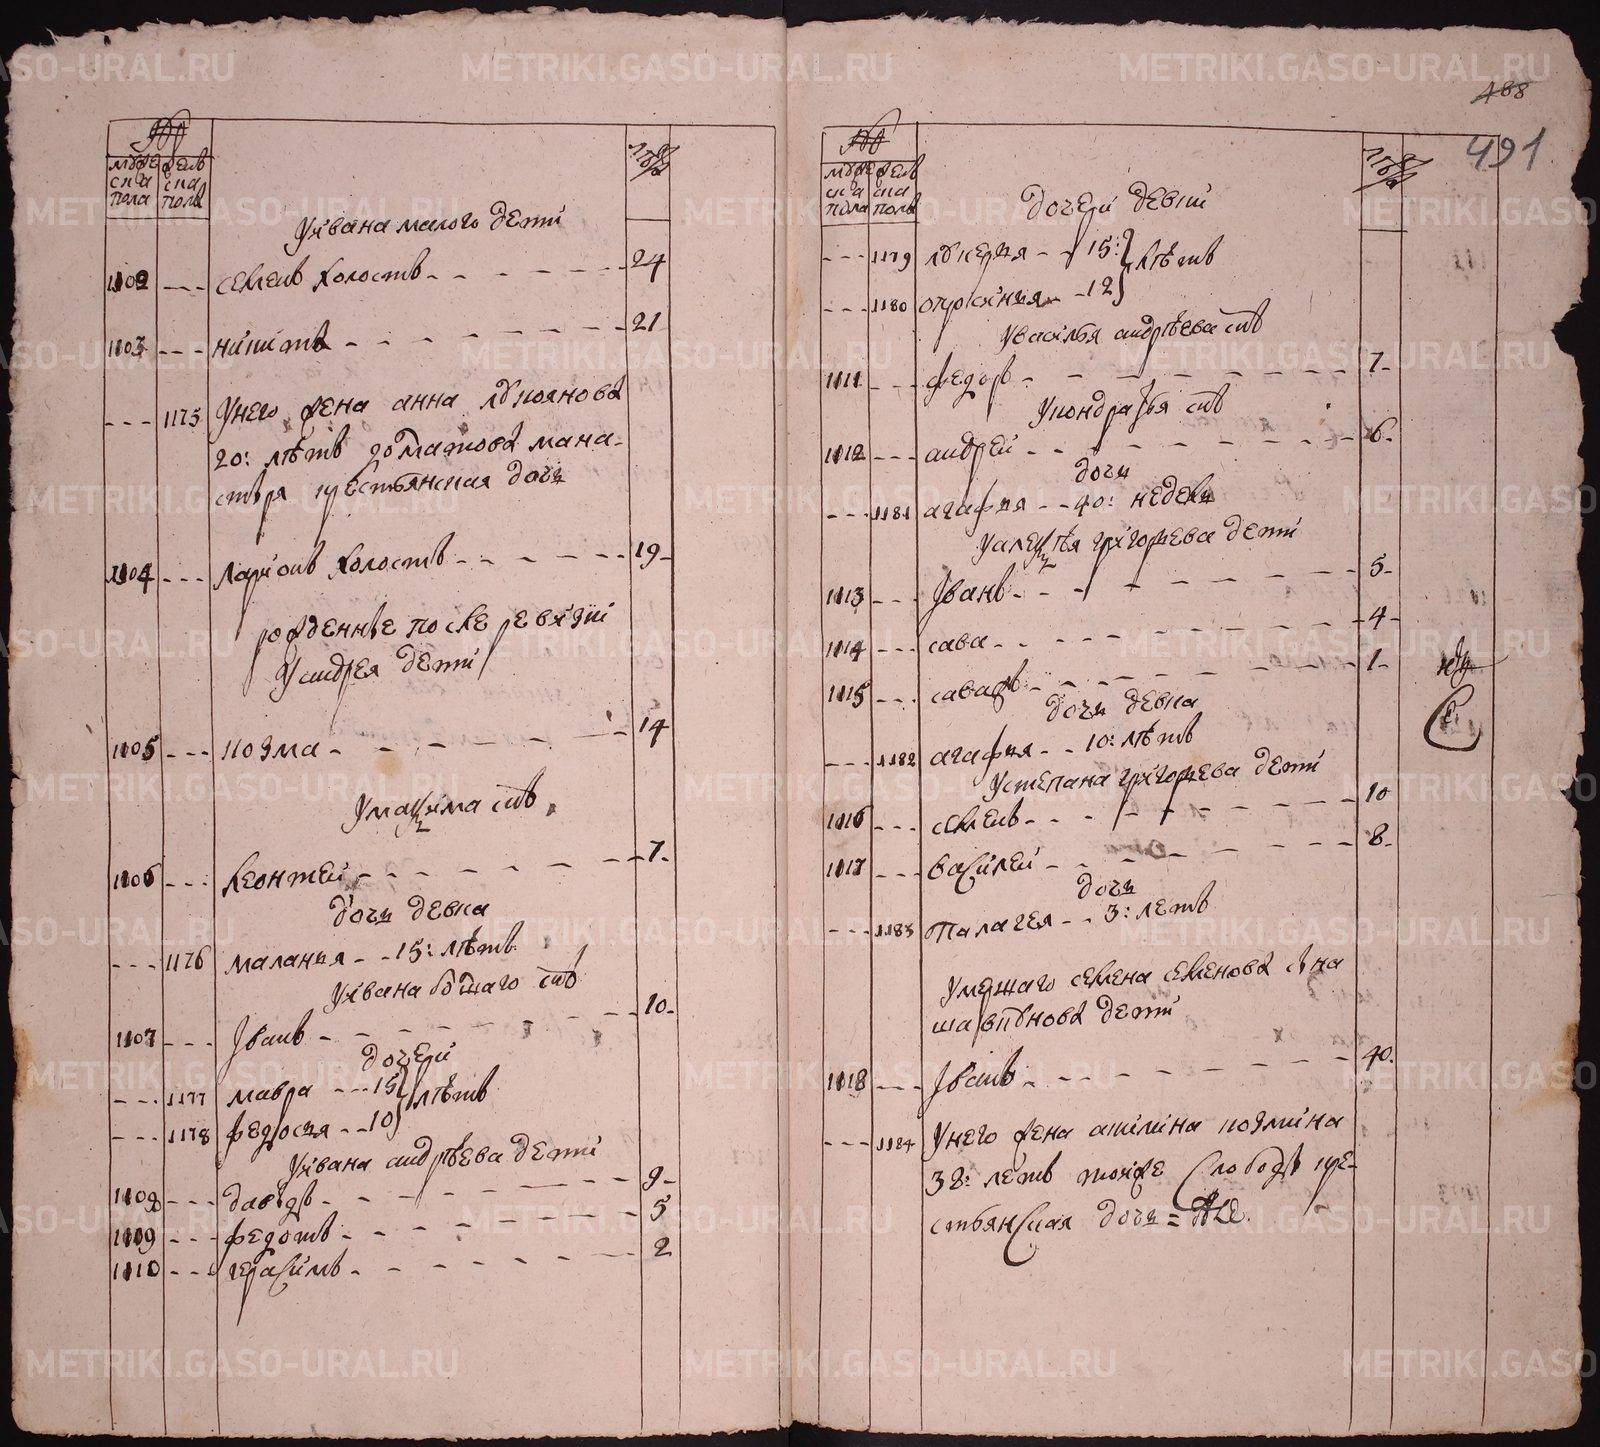 мужеска пола
женска пола
лѣта
У ивана малого дети
1102 --- семенъ холостъ - - - 24
1103 --- никита - - - 21
--- 1175 У него жена анна лукоянова
20: лѣтъ долматова мана-
стыря крестьянская дочь
1104 --- ларионъ холостъ - - - 19
рожденные после ревизии
У андрея дети
1105 --- козма - - - 14
У максима сынъ
1106 --- леонтей - - - 7
дочь девка
--- 1176 маланья - - 15: лѣтъ
У ивана болшаго сынъ
1107 --- Иванъ - - - 10
дочери
--- 1177 мавра --- 15 } лѣтъ
--- 1178 федосья -- 10
У ивана андрѣева дети
1108 --- давыдъ - - - 9
1109 --- федотъ - - - 5
1110 --- герасимъ - - - 2
488
491
мужеска пола
женска пола
лѣта
дочери девки
--- 1179 лукерья -- 15: } лѣтъ
--- 1180 офросинья -- 12
У василья андрѣева сынъ
1111 --- федоръ - - - 7
У кондратья сынъ
1112 --- андрей - - - 6
дочь
--- 1181 агафья -- 40: недель
У алексѣя григорьева дети
1113 --- Иванъ - - - 5
1114 --- сава - - - 4
1115 --- - - - 1
дочь девка
--- 1182 агафья -- 10: лѣтъ
У степана григорьева дети
1116 --- семенъ - - - 10
1117 --- василей - - - 8
дочь
--- 1183 палагея -- 3: летъ
Умершаго семена семенова сына
дети
1118 --- Иванъ - - - 40
--- 1184 У него жена акилина козмина
38: летъ тояже слободы кре-
стьянская дочь =